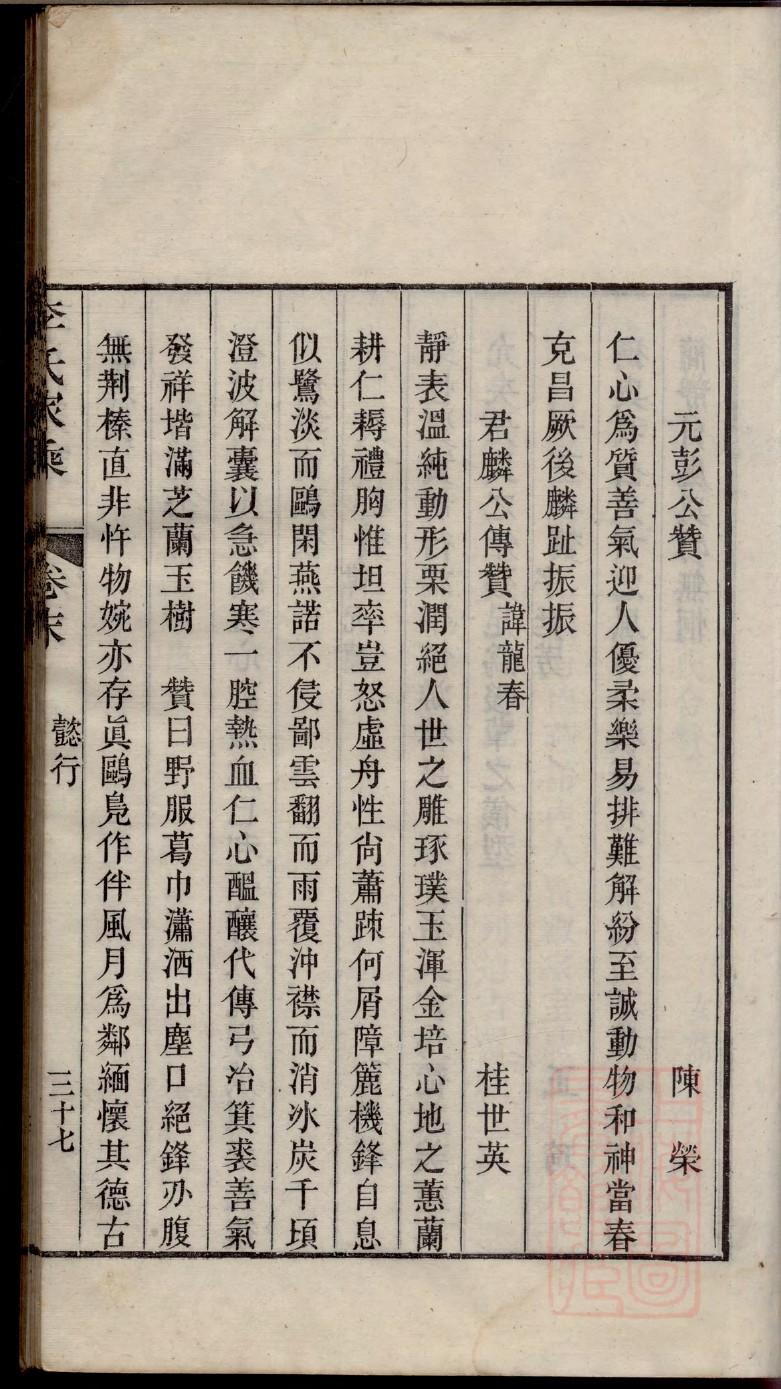 元彭公贊 陳榮
仁心爲質善氣迎人優柔樂易排難解紛至誠動物和神當春
克昌厥後麟趾振振
君麟公傳贊 諱龍春 桂世英
靜表溫純動形栗潤絕人世之雕琢璞玉渾金培心地之蕙蘭
耕仁耨禮胸惟坦率豈怒虛舟性尙蕭疎何屑障簏機鋒自息
似鷺淡而鷗閑燕諾不侵鄙雲翻而雨覆沖襟而消氷炭千頃
澄波解囊以急饑寒一腔熱血仁心醞釀代傳弓冶箕裘善氣
發祥堦滿芝蘭玉樹 贊曰野服葛巾瀟洒出塵口絕鋒刅腹
無荆榛直非忤物婉亦存眞鷗鳧作伴風月爲鄰緬懷其德古
李氏家乘 卷末 懿行 三十七